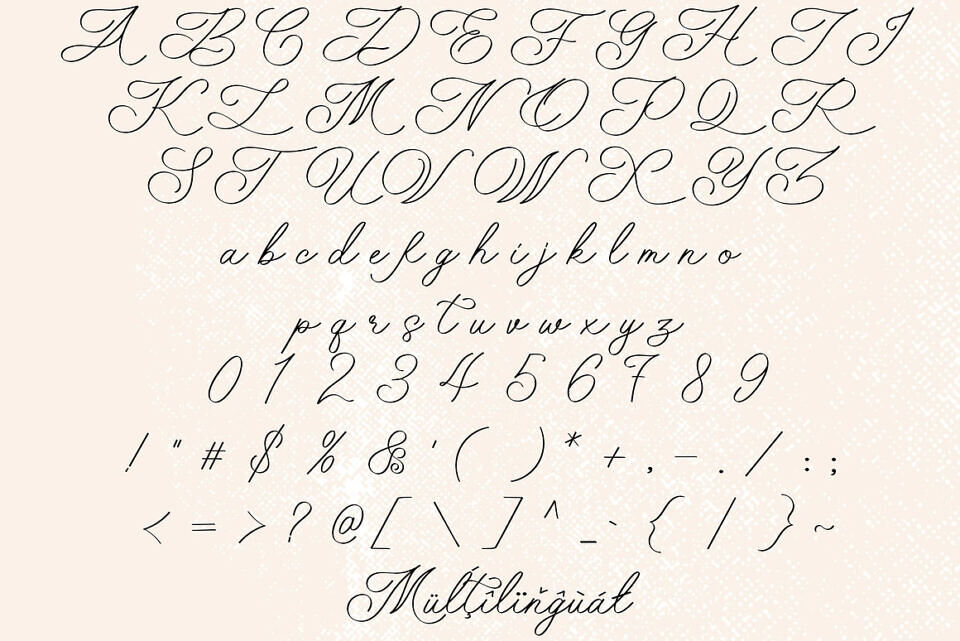 A B C D E F G H I J
K L M N O P Q R
S T U V W X Y Z
a b c d e f g h i j k l m n o
p q r s t u v w x y z
0 1 2 3 4 5 6 7 8 9
! " # $ % & ' ( ) * + , - . / : ;
< = > ? @ [ \ ] ^ _ ` { | } ~
Mülţîlïňĝùáł